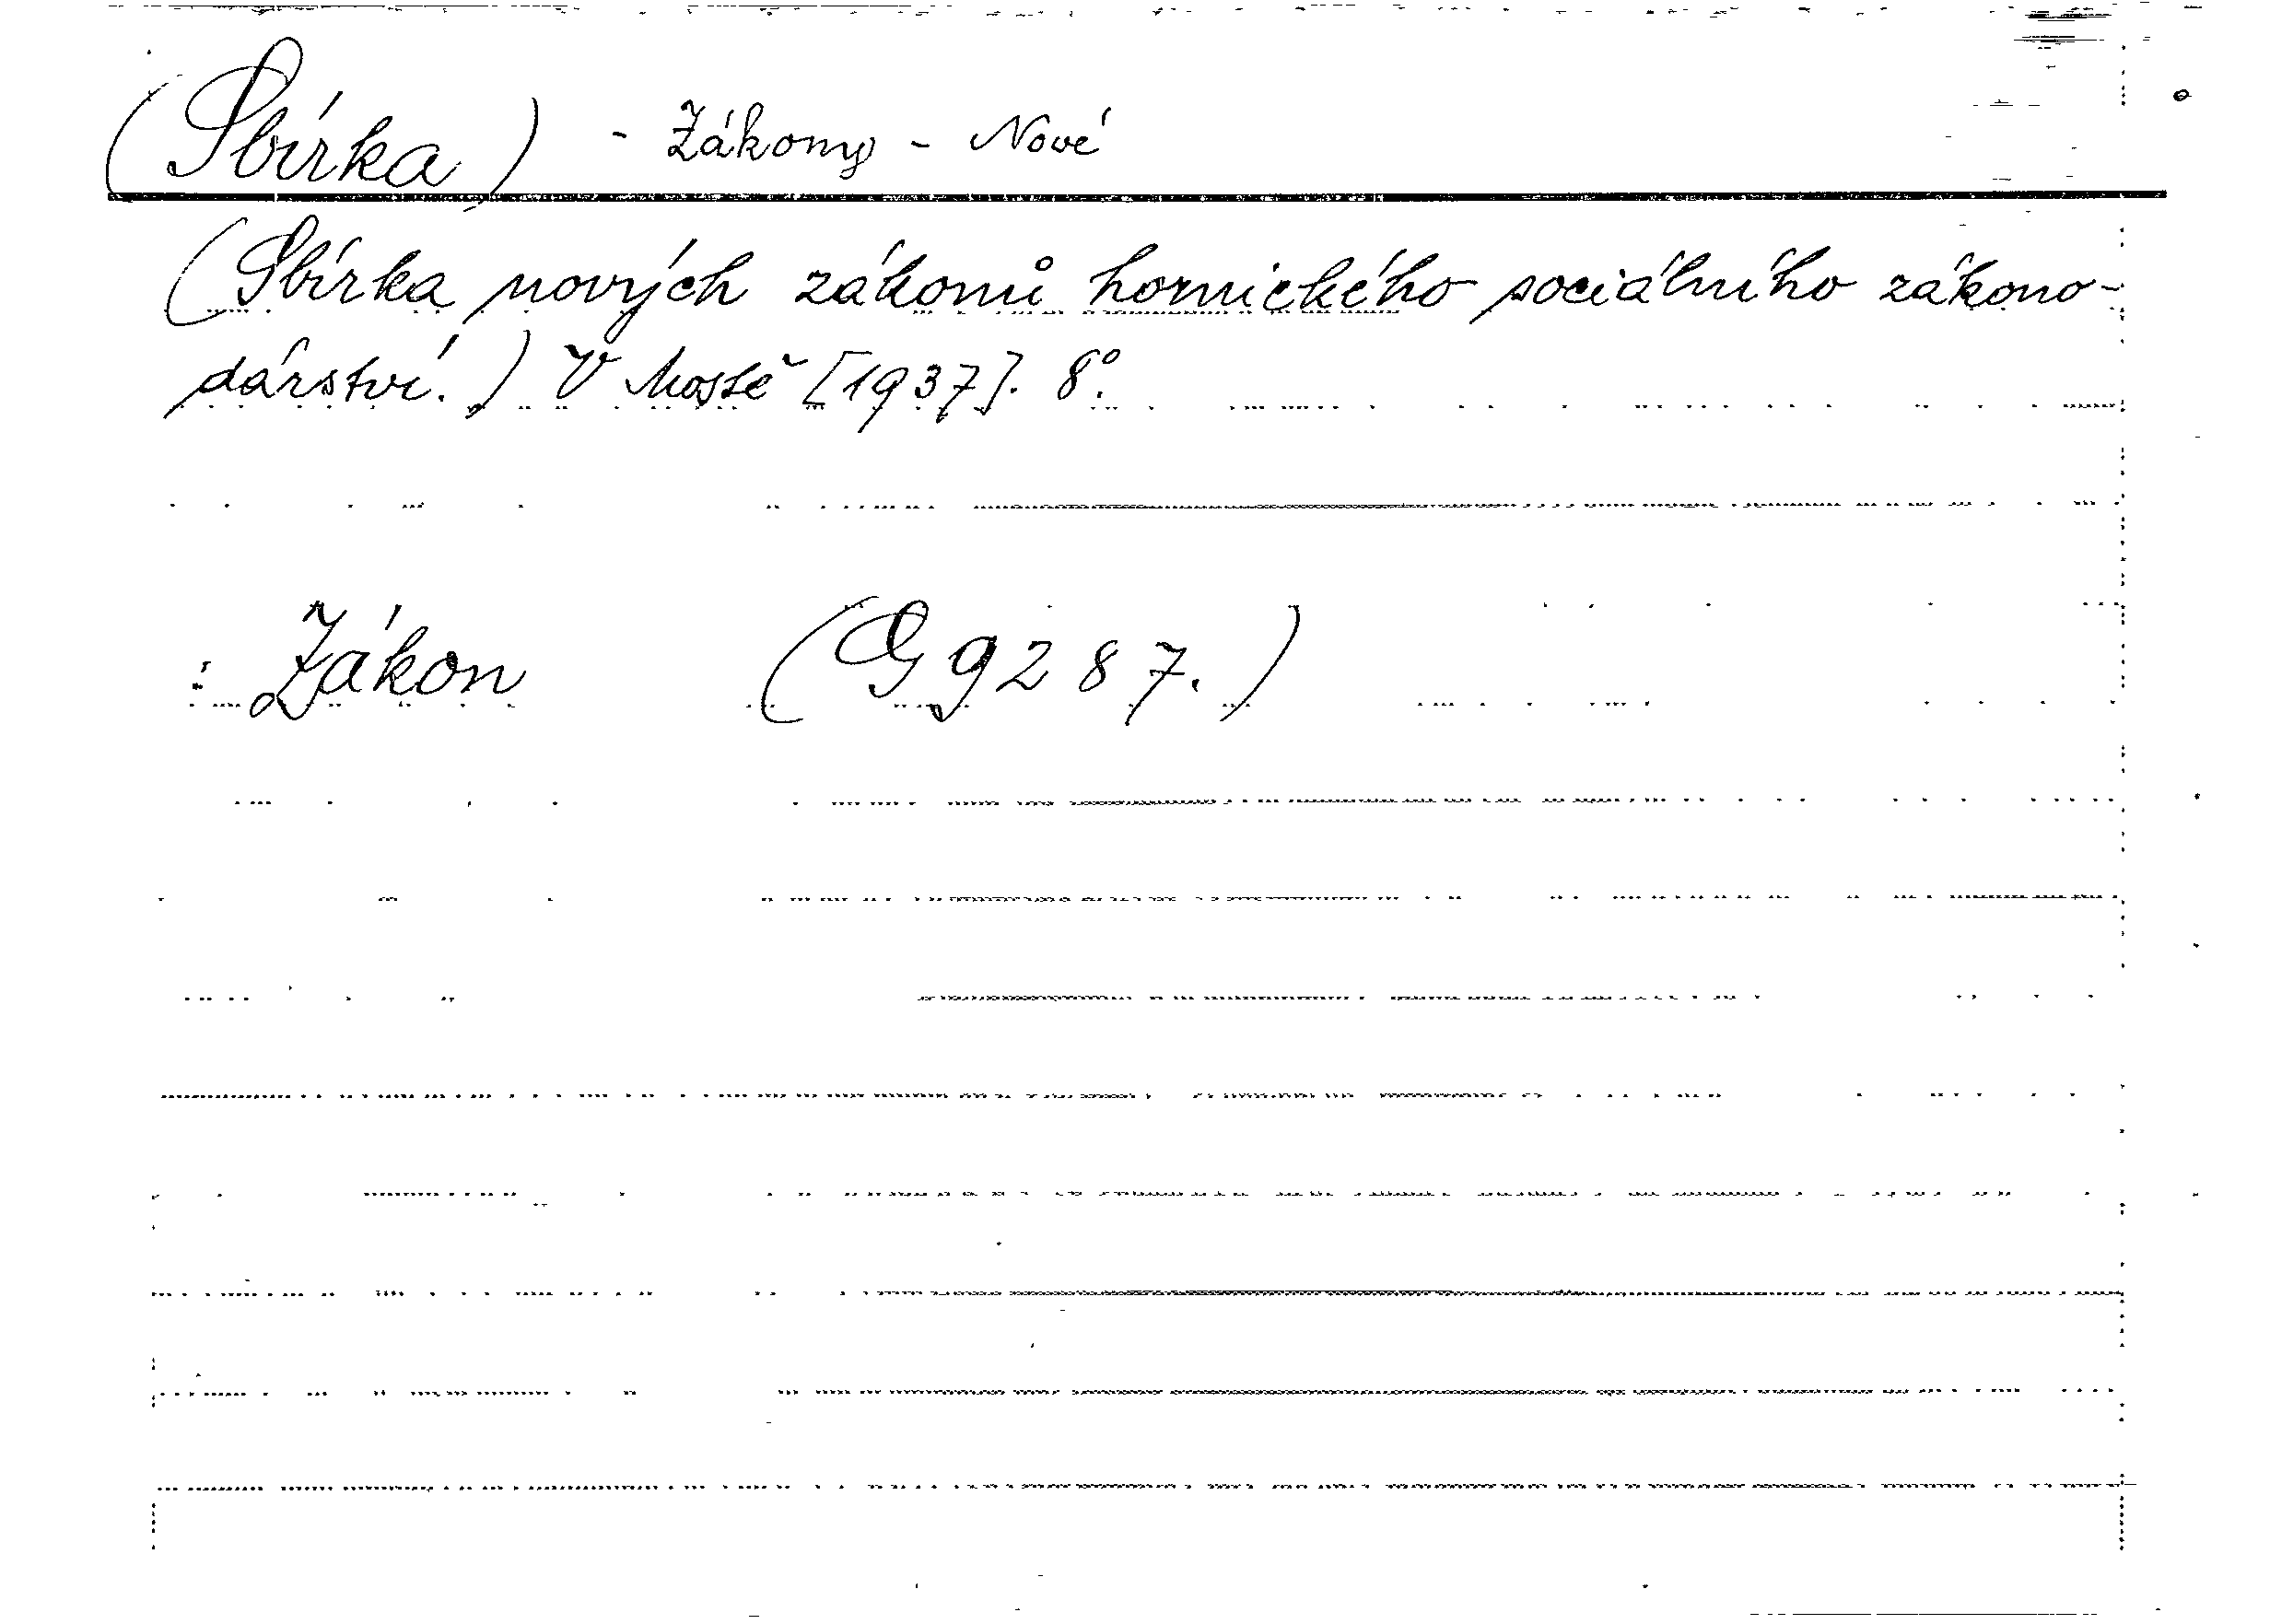 (Sbírka) - Zákony - Nové
(Sbírka nových zákonů hornického sociálního zákono-
dárství.) V Mostě [1937]. 8°.
: Zákon (G 9287.)